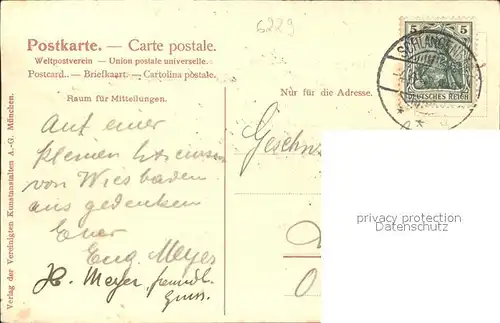 6229
Postkarte. — Carte postale.
Weltpostverein — Union postale universelle.
Postcard. — Briefkaart. — Cartolina postale.
5 5
SCHLANGEN
DEUTSCHES REICH
Raum für Mitteilungen.
Nur für die Adresse.
Auf einer
kleinen
von Wiesbaden
aus gedenken
Euer
Eug. Meyer
H. Meyer, freundl.
Gruss.
privacy protection
Datenschutz
Verlag der Vereinigten Kunstanstalten A.-G. München.